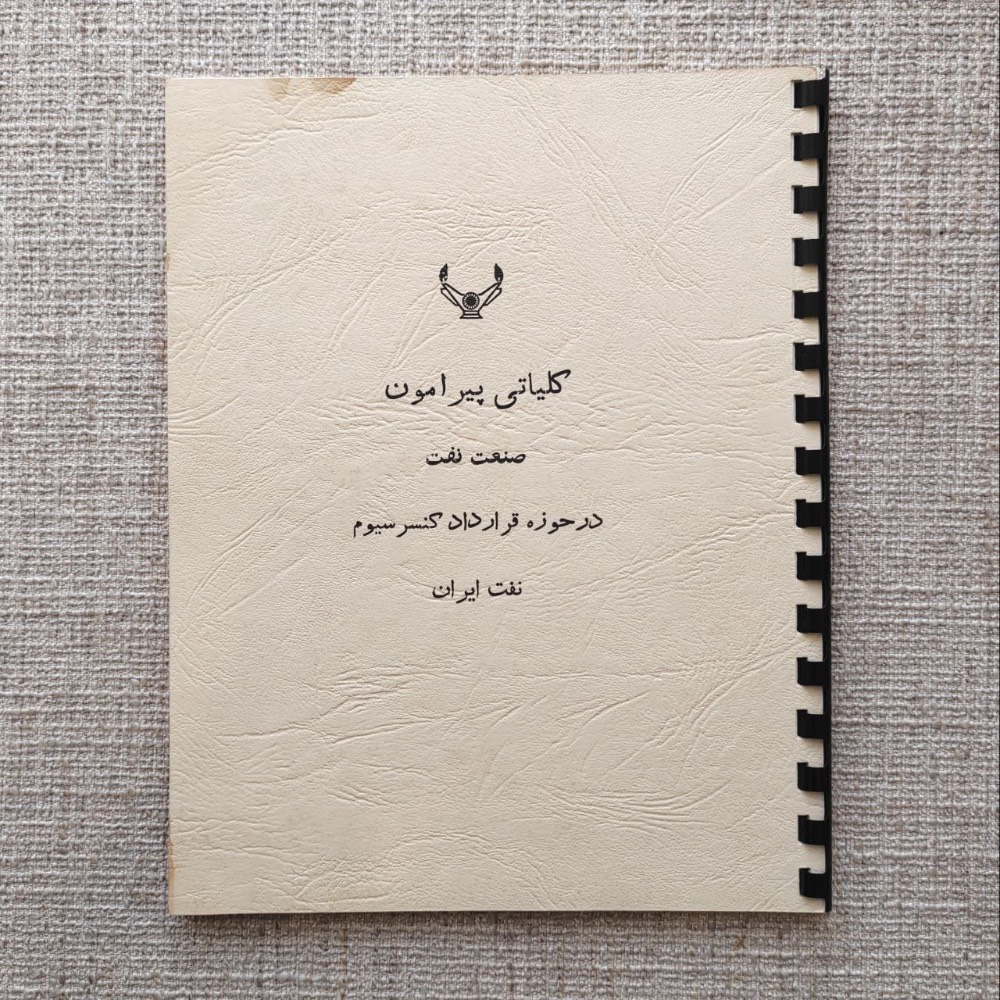 کلیاتی پیرامون
صنعت نفت
درحوزه قرارداد کنسرسیوم
نفت ایران